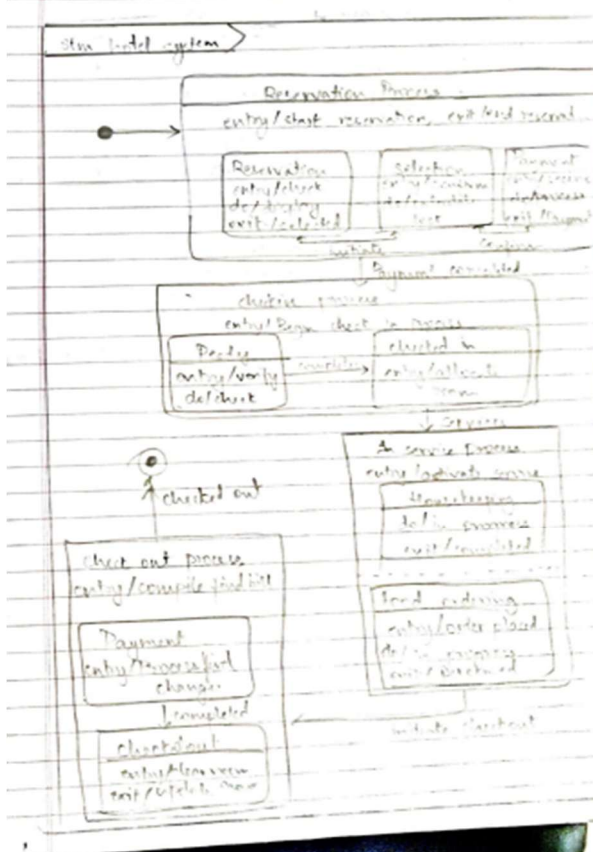 stm hotel system
Reservation Process
entry/start reservation, exit/end reservat
Reservation
entry/check
do/display
exit/selected
selection
entry/confirm
Payment
exit/Payment
initiate
confirm
Payment completed
checkin process
entry/Begin check in process
Ready
entry/verify
do/check
completes
checked in
entry/allocate
room
services
In service process
entry/activate service
Housekeeping
do/in progress
exit/completed
food ordering
entry/order placed
do/in progress
checked out
check out process
entry/compile final bill
Payment
entry/Process final
charges
completed
Checkedout
initiate checkout